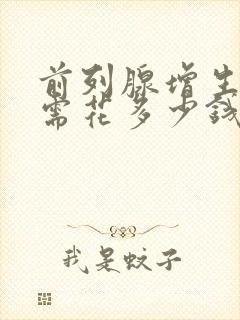 前列腺增生
需花多少钱
我是蚊子